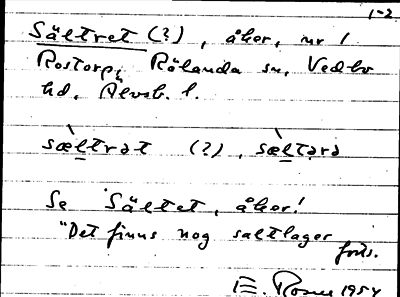 1-2
Sältret (?), åker, nr 1
Rostorp, Rölanda sn, Vedbo
hd, Älvsb. l.
sæltrət (?), sæltərə
Se Sältet, åker!
"Det finns nog saltlager
forts.
Rosell 1954